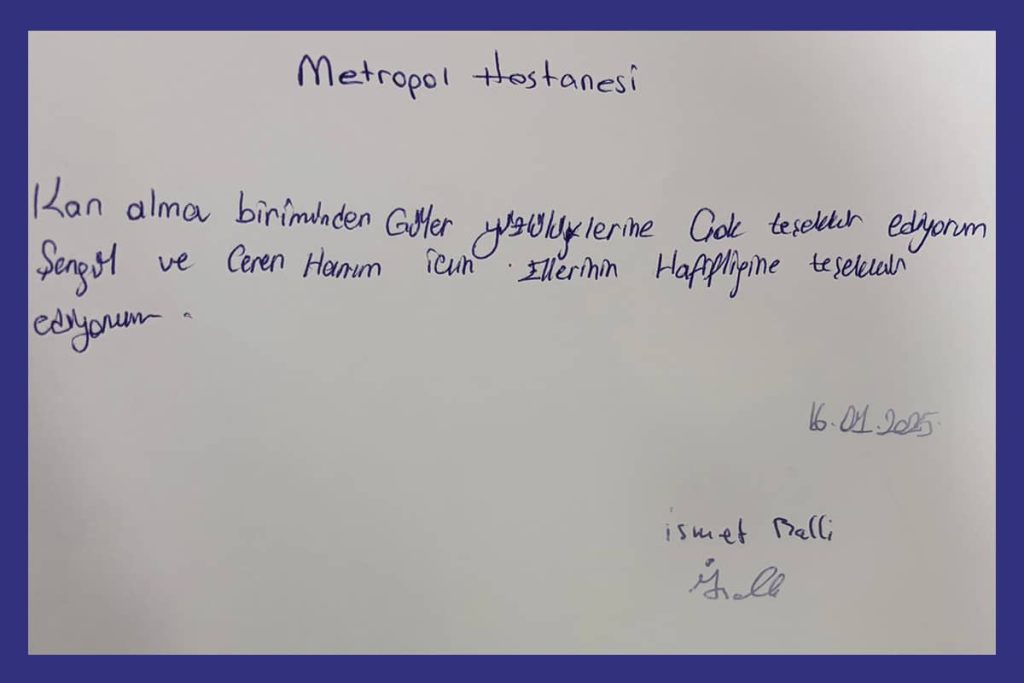 Metropol Hostanesi
Kan alma biriminden Güler yüzlülüklerine Çok teşekkür ediyorum
Şengül ve Ceren Hanım için . Ellerinin Hafifliğine teşekkür
ediyorum .
16.01.2025.
ismet Balli